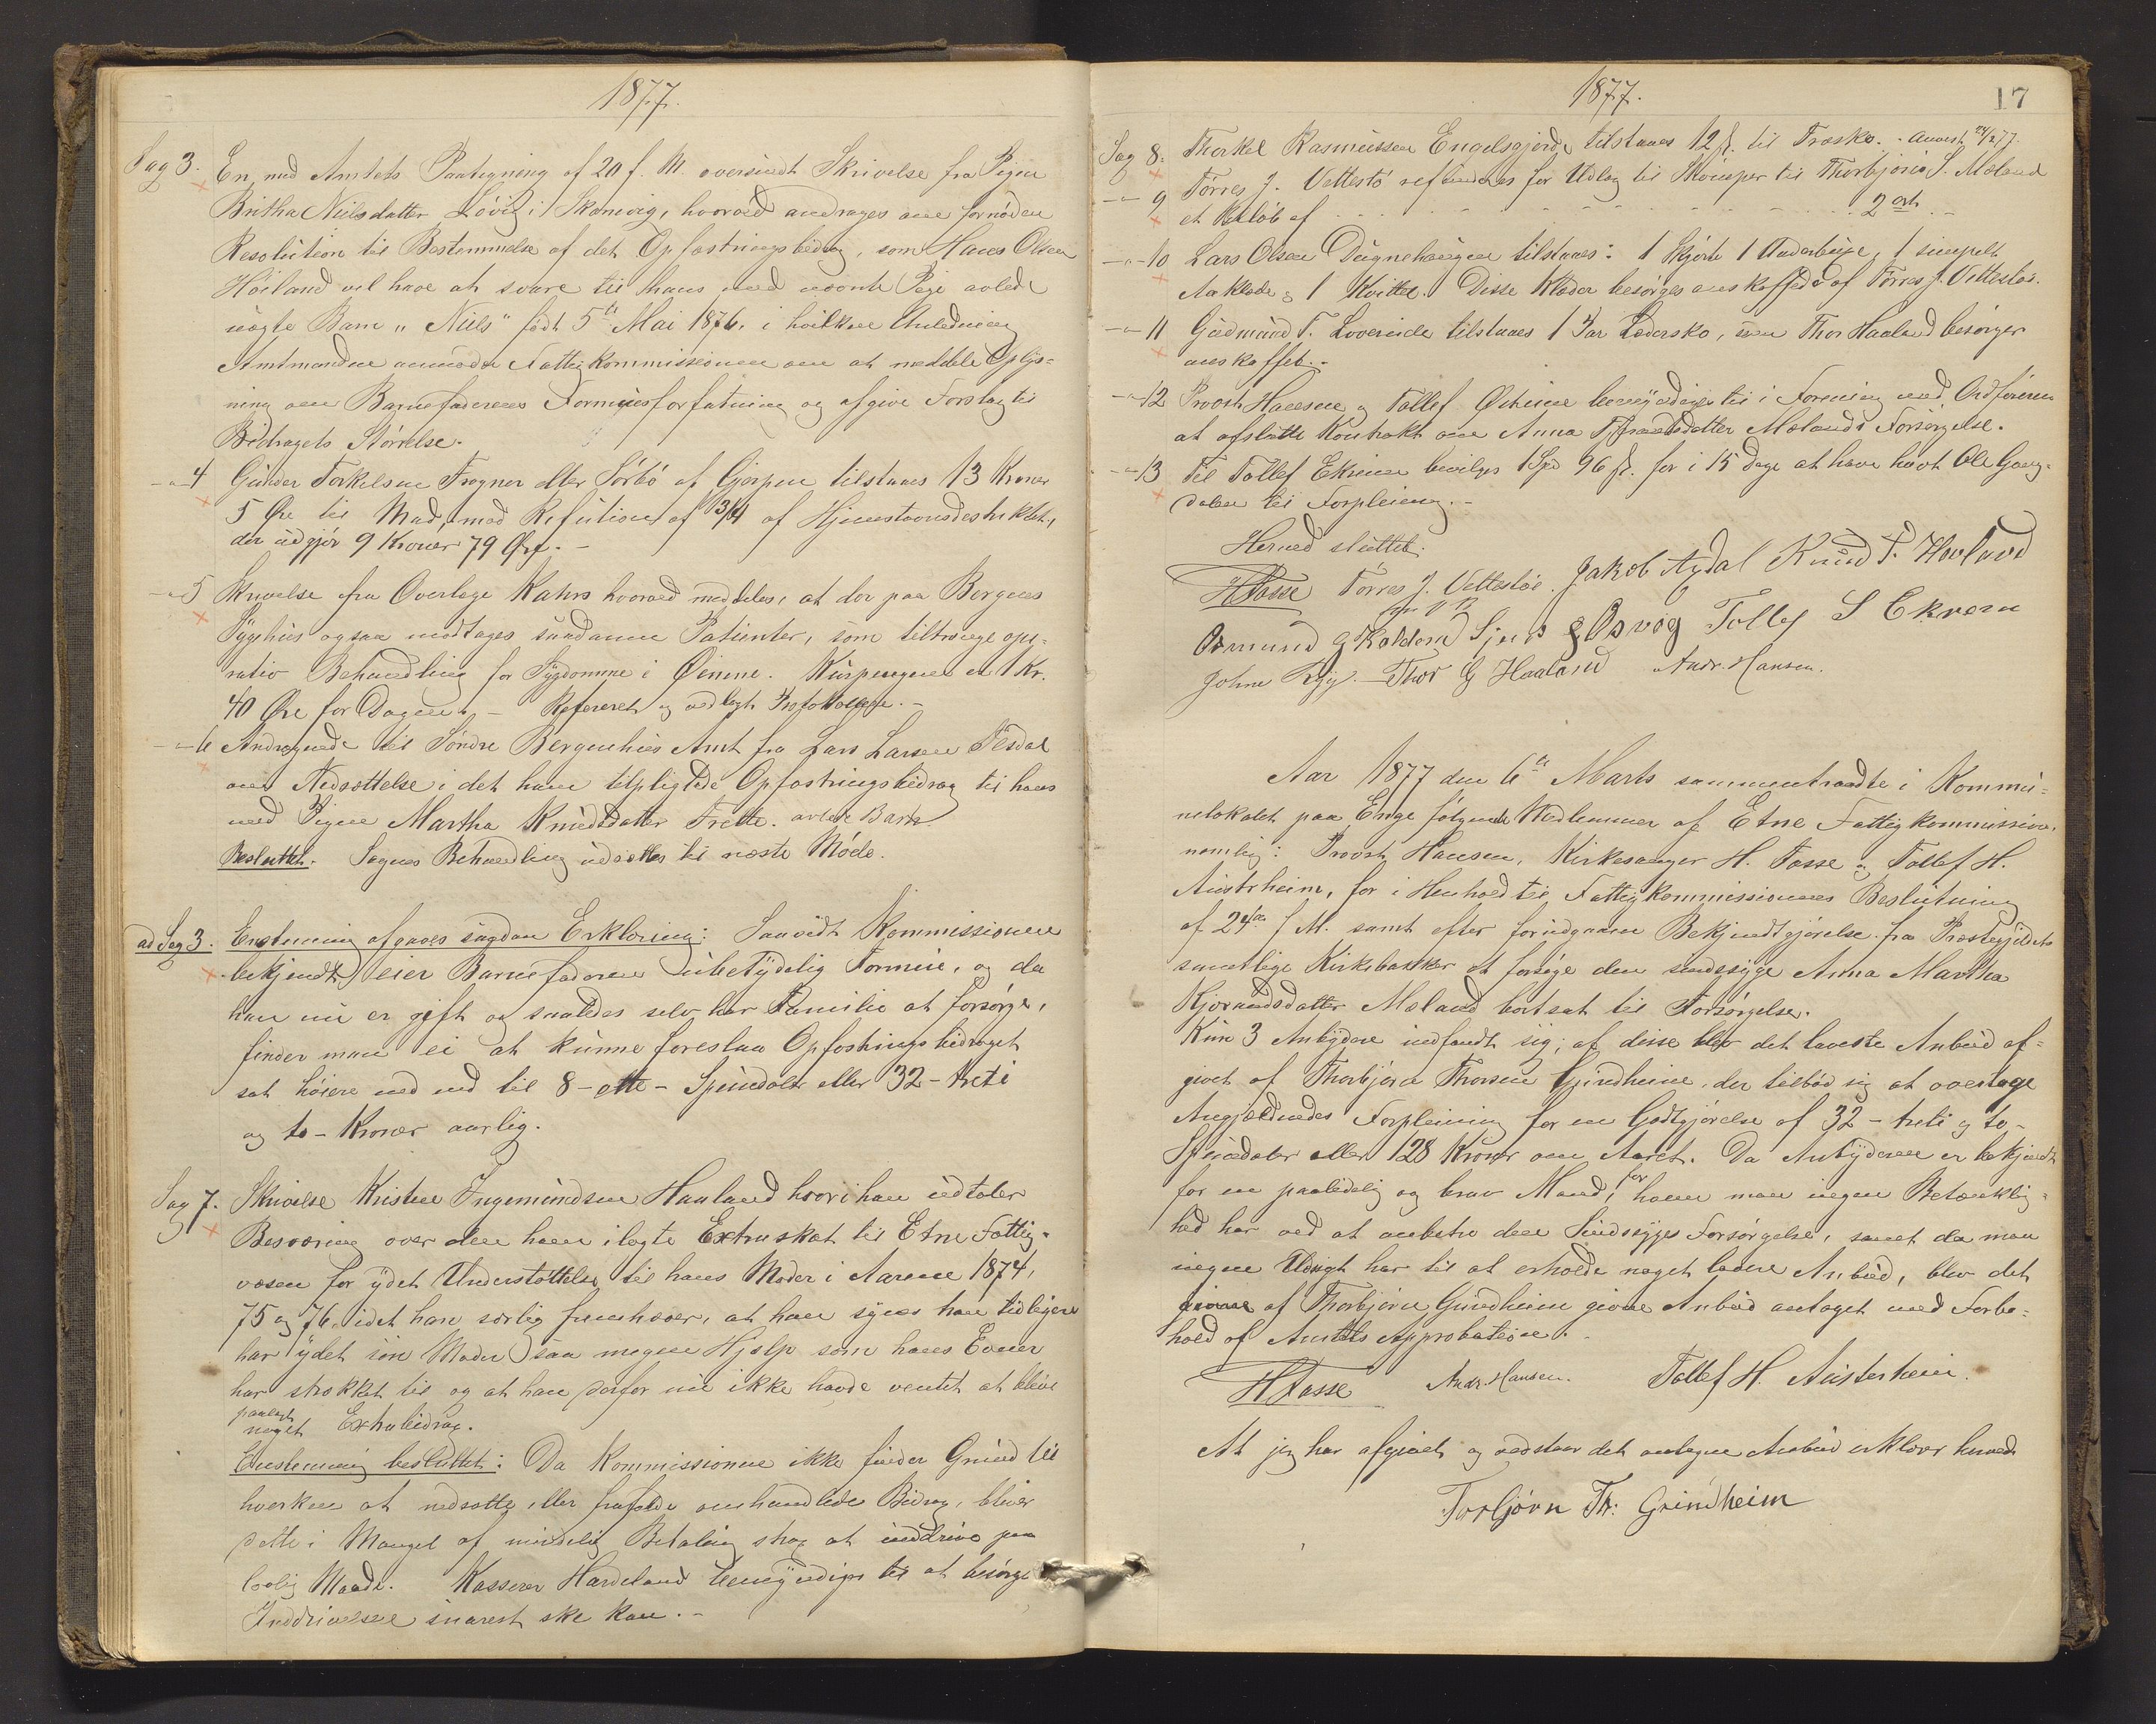 1877.
Sag 3. En med Amtets Paategning af 20 f. M. oversendt Skrivelse fra Pigen
Britha Nielsdatter Løvig i Skonevig, hvorved andrages om fornøden
Resolution til Bestemmelse af det Opfostringsbidrag, som Hans Olsen
Höiland vil have at svare til hans med nævnte Pige avlede
uægte Barn "Niels" født 5te Mai 1876, i hvilken Anledning
Amtmanden anmoder Fattigkommissionen om at meddele Oplys-
ning om Barnefaderens Formuesforfatning og afgive Forslag til
Bidragets Størrelse.
-"- 4 Gunder Torkelsen Frogner eller Sórbó af Gjerpen tilstaaes 13 Kroner
5 Øre til Mad, mod Refution af 3/4 af Hjemstavnsdestriktet,
der udgjør 9 Kroner 79 Øre. -
-"- 5 Skrivelse fra Overlæge Kahrs hvorved meddeles, at der paa Bergens
Sygehus ogsaa modtages saadanne Patienter, som tiltrænge ope-
rativ Behandling for Sygdomme i Øinene. Kurpengene er 1 Kr.
40 Øre for Dagen. - Refereret og vedlagt Protokollen. -
-"- 6 Andragende til Søndre Bergenhus Amt fra Lars Larsen Silsdal
om Nedsættelse i det ham tilpligtede Opfostringsbidrag til hans
med Pigen Martha Knudsdatter Frette avlede Barn.
Besluttet. Sagens Behandling udsættes til næste Møde.
ad Sag 3. Enstemmig afgaves saadan Erklæring: Saavidt Kommissionen
bekjendt, eier Barnefaderen ubetydelig Formue, og da
han nu er gift og saaledes selv har Familie at forsørge,
finder man ei at kunne foreslaa Opfostringsbidraget
sat høiere end ned til 8 - otte - Speciedaler eller 32 - treti
og to - Kroner aarlig.
Sag 7. Skrivelse Kristen Ingemundsen Haaland hvori han udtaler
Besværing over den ham ilagte Extraskat til Etne Fattig-
væsen for ydet Understøttelse til hans Moder i Aarene 1874,
75 og 76, idet han særlig fremhæver, at han synes han tidligere
har ydet sin Moder saa megen Hjælp som hans Evner
har strækket til og at han derfor nu ikke havde ventet at blive
paalagt
noget Extrabidrag.
Enstemmig besluttet: Da Kommissionen ikke finder Grund til
hverken at nedsætte eller frafalde omhandlede Bidrag, bliver
dette i Mangel af mindelig Betaling strax at inddrive paa
lovlig Maade. Kasserer Hardeland bemyndiges til at besørge
Inddrivelsen snarest ske kan. -
1877.
17
Sag 8. Thorkel Rasmussen Engelsgjerde tilstaaes 12 ß. til Træsko. - Anvist 24/2 77.
-"- 9 Tørres J. Vettestø refunderes for Udlæg til til Thorbjørn S. Moland
et Beløb af - - - 2 ort. -
-"- 10 Lars Olsen Dugnehaugen tilstaaes: 1 Skjorte 1 Underbuxe, 1 simpelt
Aaklæde, 1 Kvittel. Disse Klæder besørges anskaffede af Tørres J. Vettestø.
-"- 11 Gudmund T. Lovereide tilstaaes 1 Par Lædersko, som Thor Haaland besørger
anskaffet. -
-"- 12 Provst Hansen og Tollef Østreim bemyndiges til i Forening med Ordføreren
at afslutte Kontrakt om Anna datter Mælands Forsørgelse.
-"- 13 Til Tollef Ekrem bevilges 1 Spd 96 ß. for i 15 Dage at have havt Ole Gaug-
dalen til Forpleining. -
Herved sluttet.
HTasse Tørres J. Vettestøe. Jakob Aydal Knud T. Hovland
Osmund G Kaldem Sjur Osvog Tollef S Ekrem
Johne Ryg. Thor G Haaland Andr. Hansen.
Aar 1877 den 6te Marts sammentraadte i Kommu-
nelokalet paa Enge følgende Medlemmer af Etne Fattigkommission,
nemlig: Provst Hansen, Kirkesanger H. Tasse og Tollef H.
Austrheim, for i Henhold til Fattigkommissionens Beslutning
af 24de f. M. samt efter forudgaaen Bekjendtgjørelse fra Præstegjeldets
samtlige Kirkebakker at forsøge den sindssyge Anna Martha
Kjørandsdatter Mæland bortsat til Forsørgelse.
Kun 3 Anbydere indfandt sig; af disse blev det laveste Anbud af-
givet af Thorbjørn Thorsen Grindheim, der tilbød sig at overtage
Angjældendes Forpleining for en Godtgjørelse af 32 - treti og to -
Speciedaler eller 128 Kroner om Aaret. Da Anbyderen er bekjendt
for en paalidelig og brav Mand, for hvem man ingen Betænklig-
hed har ved at anbetro den Sindssyges Forsørgelse, samt da man
ingen Udsigt har til at erholde noget lavere Anbud, blev det
givne af Thorbjørn Grindheim givne Anbud antaget med Forbe-
hold af Amtets Approbation.
HTasse Andr. Hansen. Tollef H. Austerheim.
At jeg har afgivet og vedstaar det antagne Anbud erklærer herved
Torbjørn Th: Grindheim